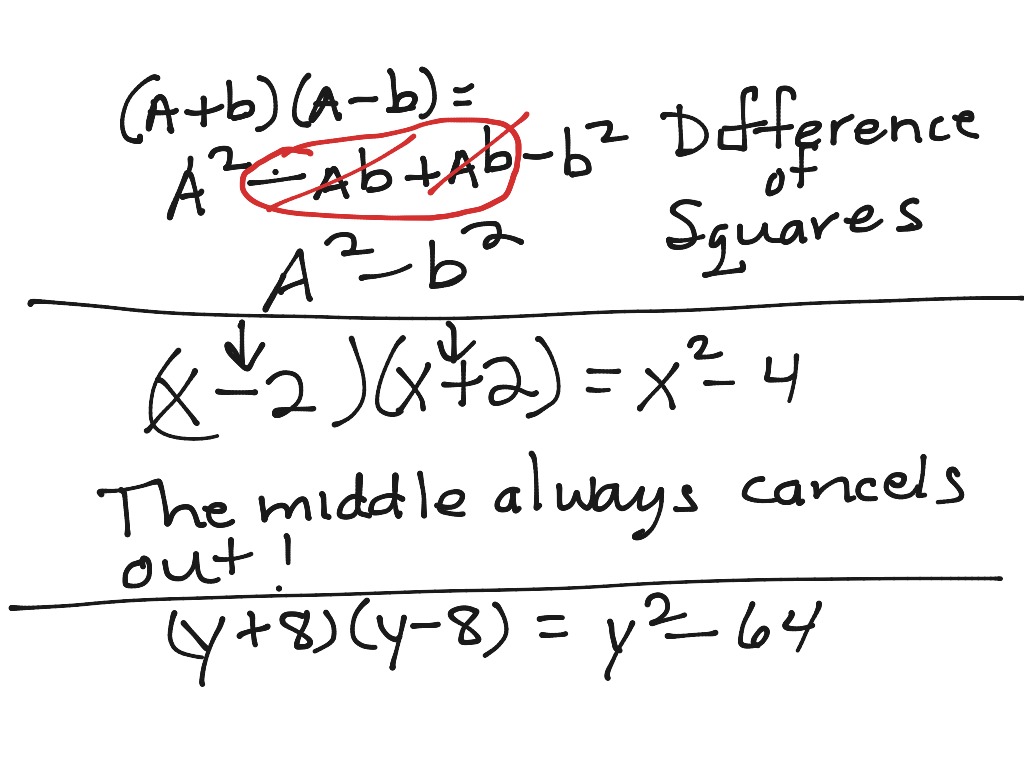 (A+b)(A-b)=
A² - Ab + Ab - b²
A² - b²
Difference
of
Squares
(x-2)(x+2) = x² - 4
The middle always cancels
out!
(y+8)(y-8) = y² - 64